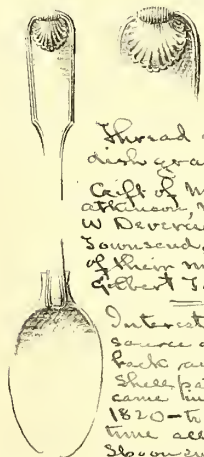 Thread
dish gra
Gift of M
Atkinson,
W Deveren
Townsend,
of their m
Gilbert
Interest
source
back
Shell pa
came
1820–to
time all
Spoon